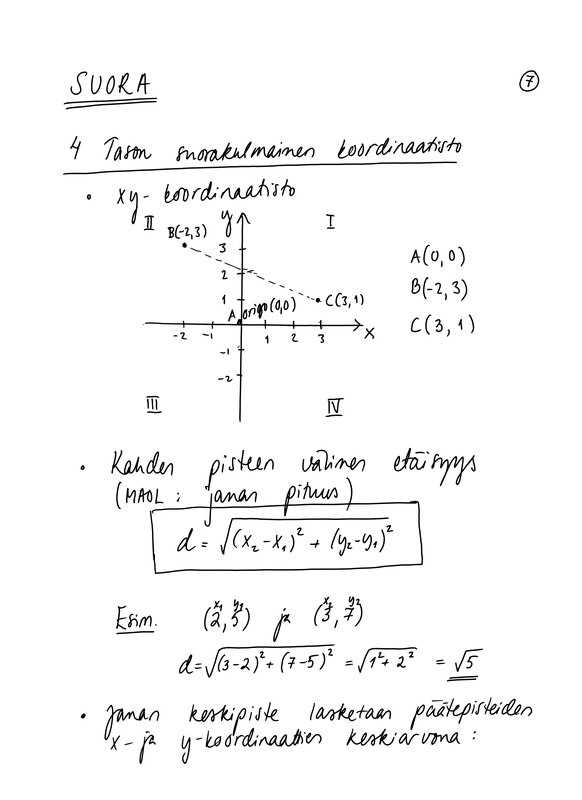 SUORA
7
4 Tason suorakulmainen koordinaatisto
• xy-koordinaatisto
II
y
I
B(-2,3)
3
2
1
C(3,1)
A origo(0,0)
-2 -1 1 2 3 x
-1
-2
III
IV
A(0,0)
B(-2,3)
C(3,1)
• Kahden pisteen välinen etäisyys
(MAOL: janan pituus)
d = √((x₂-x₁)² + (y₂-y₁)²)
x₁ y₁ x₂ y₂
Esim. (2,5) ja (3,7)
d=√((3-2)²+(7-5)²) = √(1²+2²) = √5
• Janan keskipiste lasketaan päätepisteiden
x- ja y-koordinaattien keskiarvona: